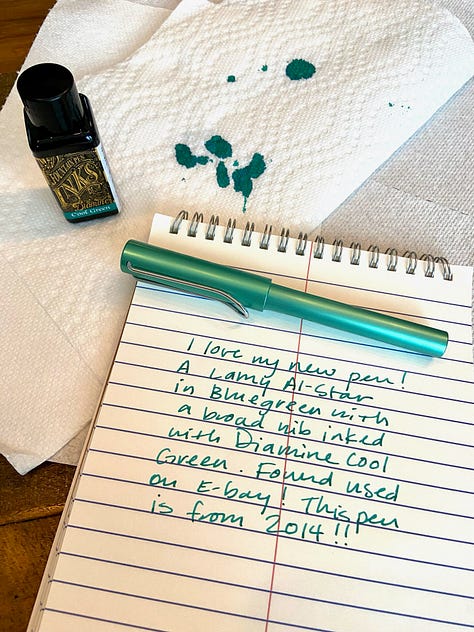 INKS
Diamine
Cool Green
I love my new pen!
A Lamy Al-Star
in Bluegreen with
a broad nib inked
with Diamine Cool
Green. Found used
on E-bay! This pen
is from 2014!!